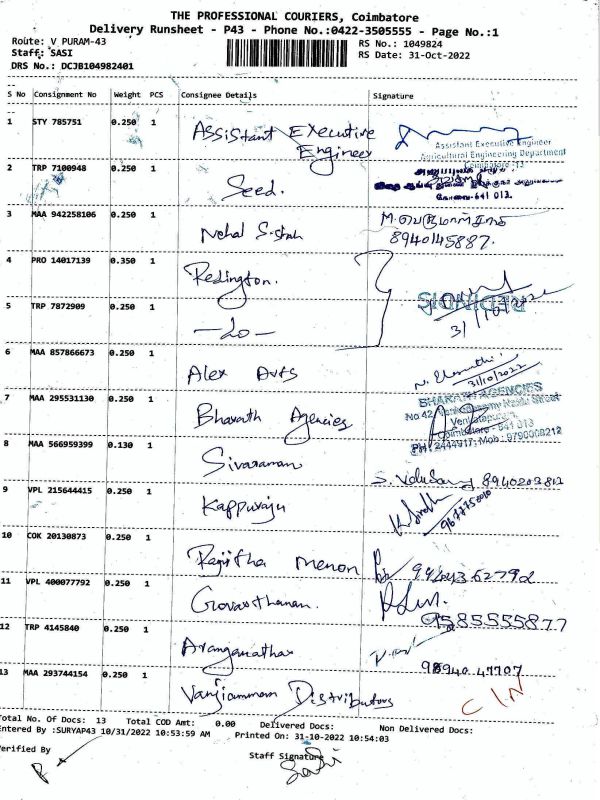 THE PROFESSIONAL COURIERS, Coimbatore
Delivery Runsheet - P43 - Phone No.:0422-3505555 - Page No.:1
Route: V_PURAM-43
RS No.: 1049824
Staff: SASI
RS Date: 31-Oct-2022
DRS No.: DCJB104982401
S No Consignment No Weight PCS Consignee Details Signature
1 STY 785751 0.250 1 Assistant Executive Engineer
Assistant Executive Engineer
Agricultural Engineering Department
Coimbatore-13
2 TRP 7100948 0.250 1 Seed.
கோவை-641 013.
3 MAA 942258106 0.250 1 Nehal S.Shah
8940145887.
4 PRO 14017139 0.350 1 Redington.
REDINGTON
31/10/2022
5 TRP 7872909 0.250 1 —do—
6 MAA 857866673 0.250 1 Alex Arts
31/10/2022
7 MAA 295531130 0.250 1 Bharath Agencies
BHARATH AGENCIES
Coimbatore - 641 013
8 MAA 566959399 0.130 1 Sivaraman
9 VPL 215644415 0.250 1 Kappuraju
10 COK 20130873 0.250 1 Rejitha Menon
11 VPL 400077792 0.250 1 Govarthanan.
9585555877
12 TRP 4145840 0.250 1 Aranganathar
13 MAA 293744154 0.250 1 Vanjiamman Distributors
Total No. Of Docs: 13 Total COD Amt: 0.00 Delivered Docs: Non Delivered Docs:
Entered By :SURYAP43 10/31/2022 10:53:59 AM Printed On: 31-10-2022 10:54:03
Verified By
Staff Signature
Sasi